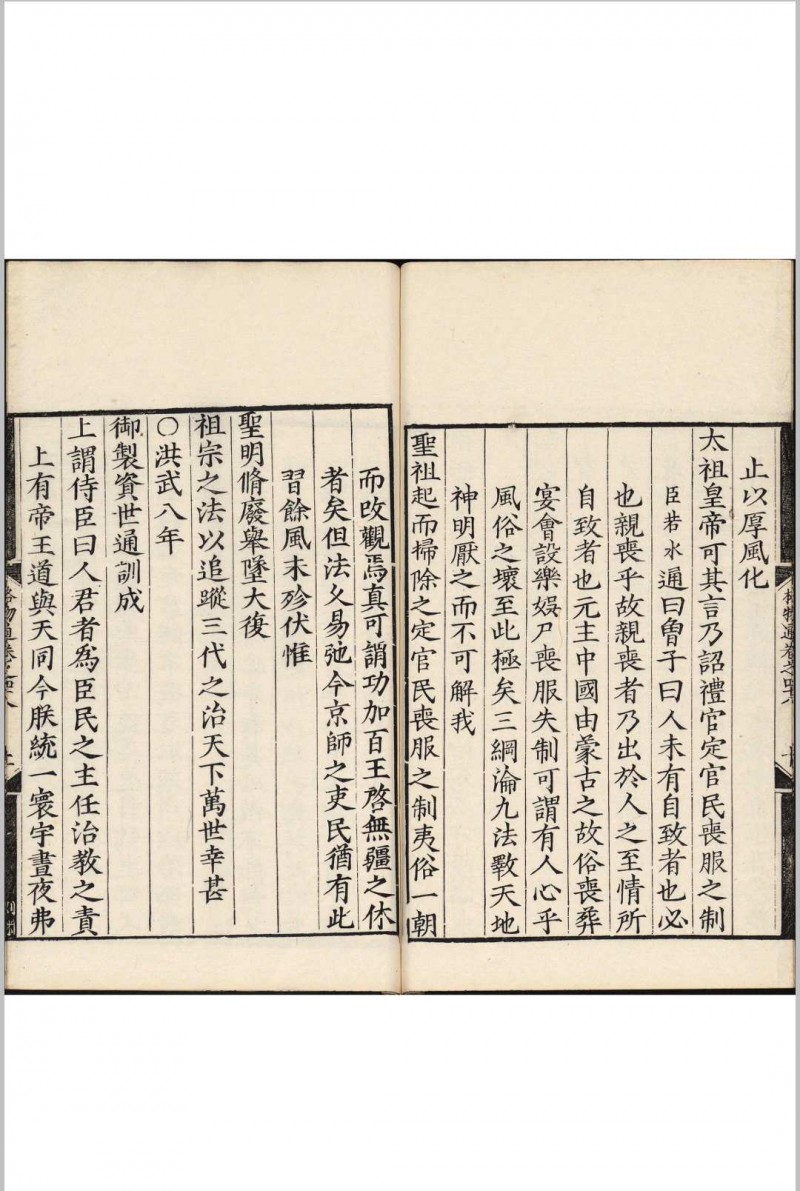 止以厚風化
太祖皇帝可其言乃詔禮官定官民喪服之制
臣若水通曰曾子曰人未有自致者也必
也親喪乎故親喪者乃出於人之至情所
自致者也元主中國由蒙古之故俗喪葬
宴會設樂娛尸喪服失制可謂有人心乎
風俗之壞至此極矣三綱淪九法斁天地
神明厭之而不可解我
聖祖起而掃除之定官民喪服之制夷俗一朝
而改觀焉真可謂功加百王啓無疆之休
者矣但法乆易弛今京師之吏民猶有此
習餘風未殄伏惟
聖明脩廢舉墜大復
祖宗之法以追蹤三代之治天下萬世幸甚
○洪武八年
御製資世通訓成
上謂侍臣曰人君者爲臣民之主任治教之責
上有帝王道與天同今朕統一寰宇晝夜弗